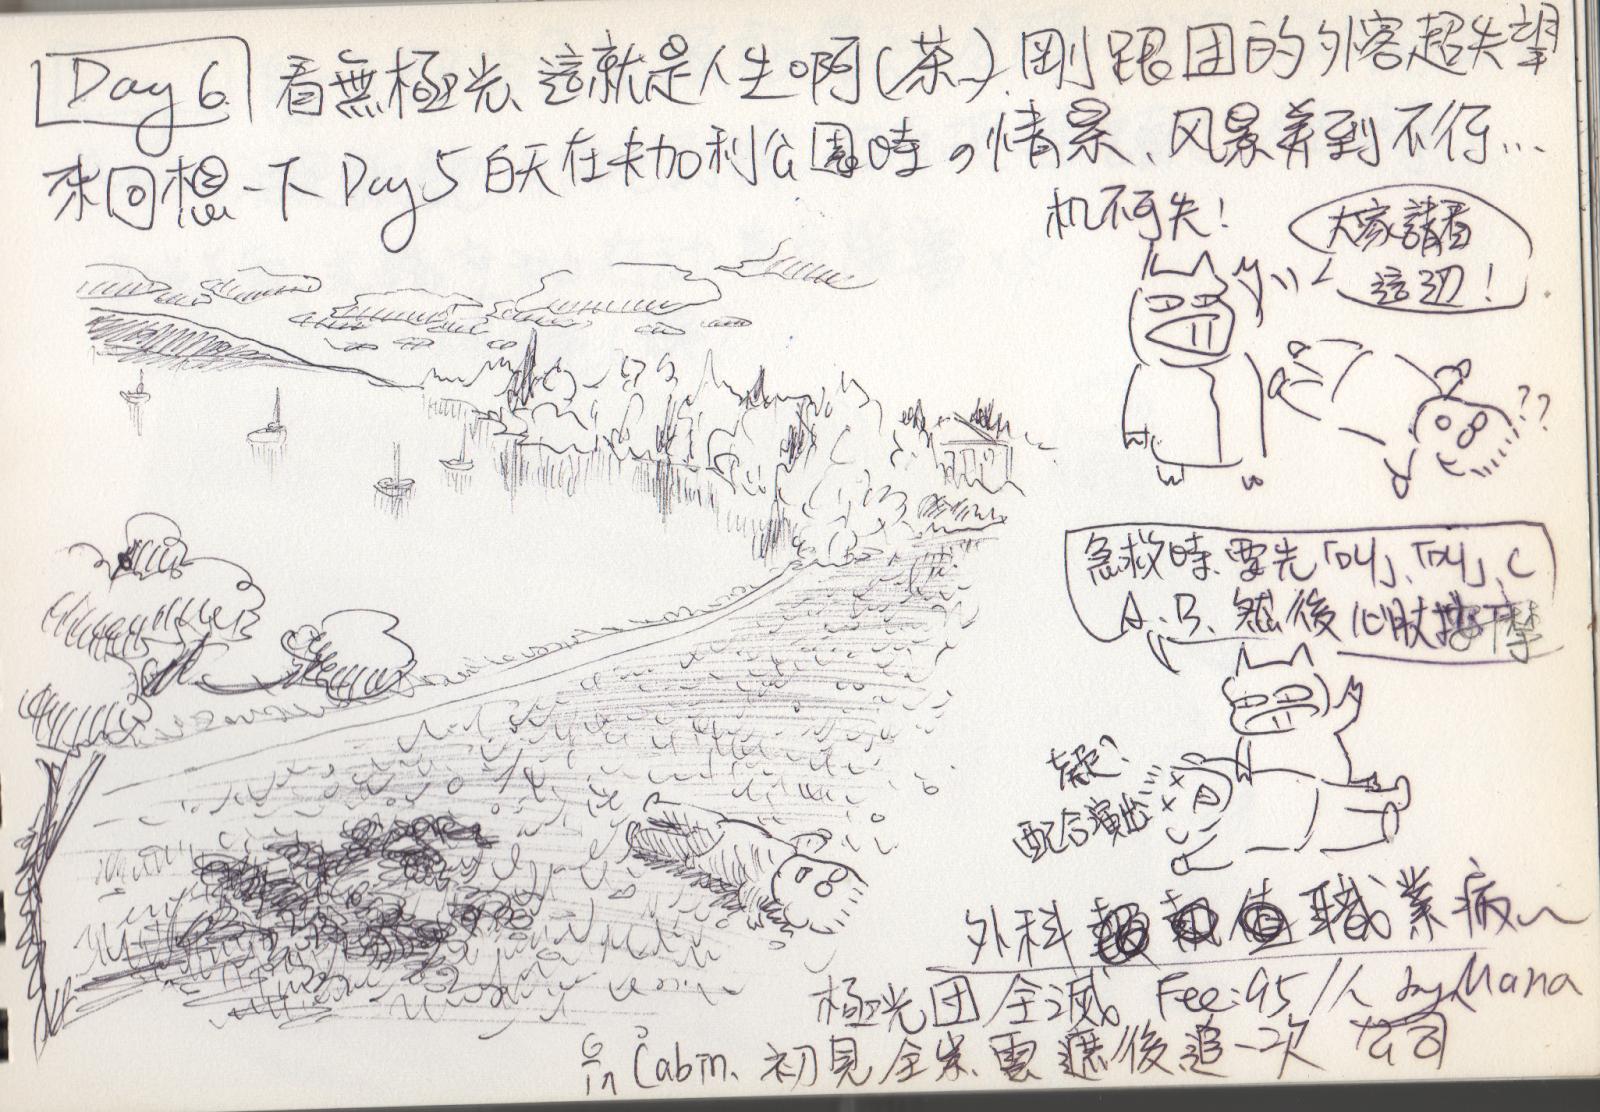 Day 6 看無極光、這就是人生啊(茶)、剛跟团的外客超失望
來回想一下 Day 5 白天在卡加利公園時の情景、风景美到不行...
机不可失!
大家請看
這辺!
??
急救時、要先「叫」、「叫」、C
A、B、然後心肚按摩
疑?
配合演出
外科 職業病~
極光团全滅。 Fee:95/人 by Mana
公司
Cabin、初見全紫、雲遮後追一次